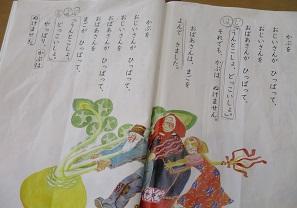 かぶを
おじいさんが ひっぱって、
おじいさんを
おばあさんが ひっぱって、
「うんとこしょ、どっこいしょ。」
それでも、かぶは ぬけません。
おばあさんは、まごを
よんで きました。
かぶを
おじいさんが ひっぱって、
おじいさんを
おばあさんが ひっぱって、
おばあさんを
まごが ひっぱって、
「うんとこしょ、
どっこいしょ。」
やっぱり、かぶは
ぬけません。